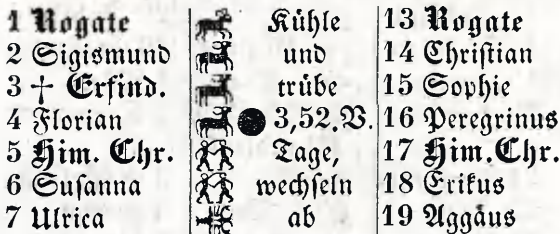 1 Rogate Kühle 13 Rogate
2 Sigismund und 14 Chriſtian
3 † Erfind. trübe 15 Sophie
4 Florian 3,52.V. 16 Peregrinus
5 Him. Chr. Tage, 17 Him. Chr.
6 Suſanna wechſeln 18 Erikus
7 Ulrica ab 19 Aggäus